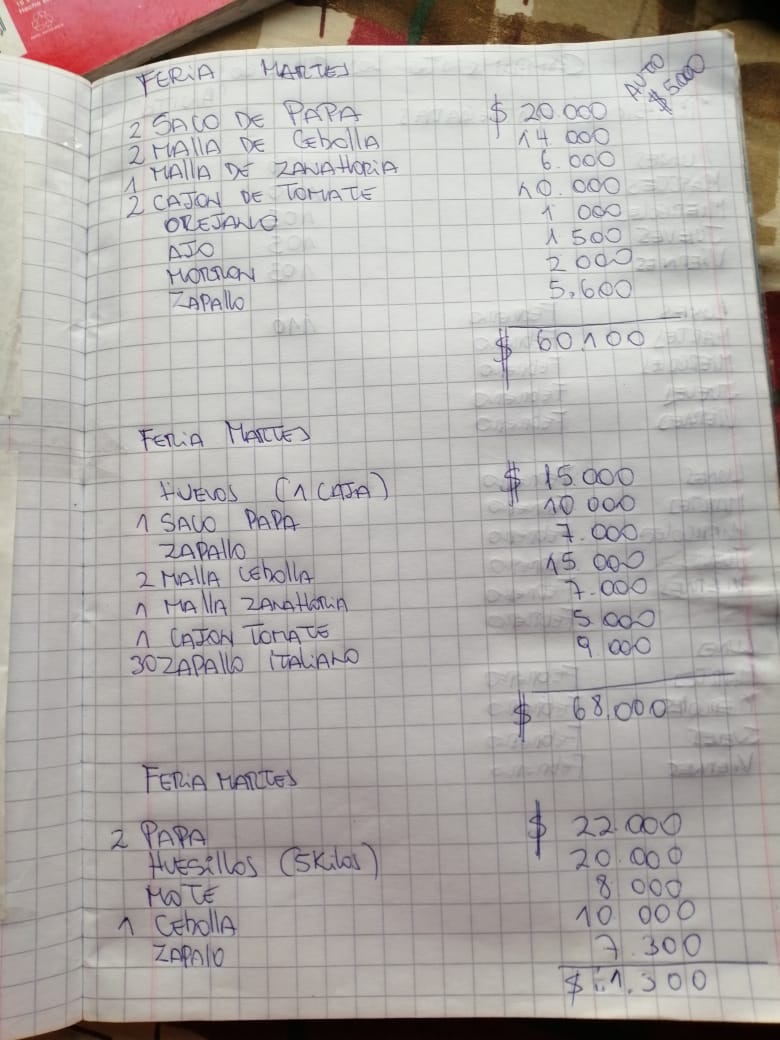 FERIA MARTES
AUTO
$5000
2 SACO DE PAPA $ 20.000
2 MALLA DE CEBOLLA 14 000
1 MALLA DE ZANAHORIA 6.000
2 CAJON DE TOMATE 10.000
OREJANO 1 000
AJO 1 500
MORRON 2 000
ZAPALLO 5.600
$ 60.100
FERIA MARTES
HUEVOS (1 CAJA) $ 15 000
1 SACO PAPA 10 000
ZAPALLO 7.000
2 MALLA CEBOLLA 15 000
1 MALLA ZANAHORIA 7.000
1 CAJON TOMATE 5 000
30 ZAPALLO ITALIANO 9 000
$ 68.000
FERIA MARTES
2 PAPA $ 22.000
HUESILLOS (5 Kilos) 20.000
MOTE 8 000
1 CEBOLLA 10 000
ZAPALLO 7.300